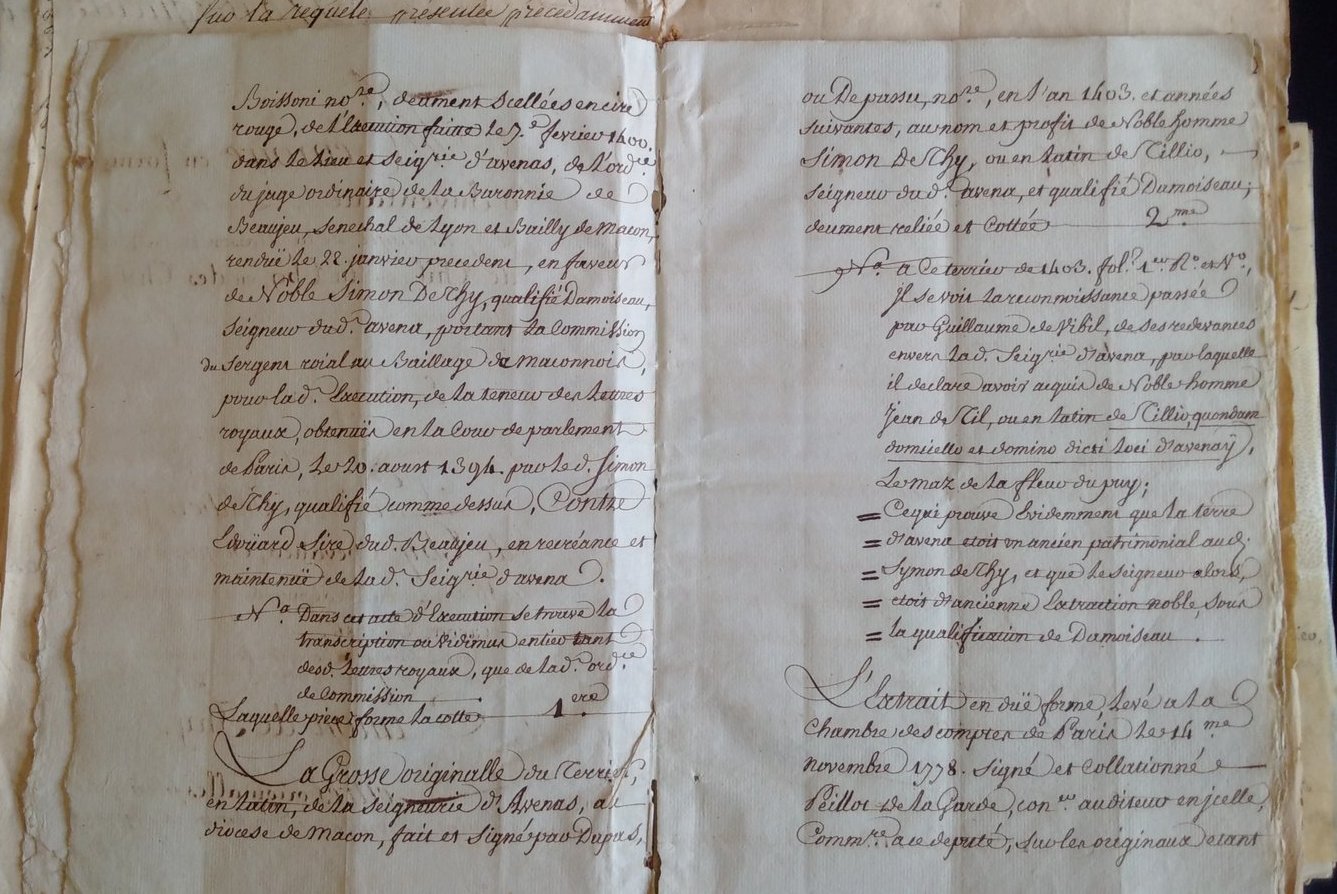 sur la requete presentée precedamment
Boissoni no.re, deument scellées en cire
rouge, de l'Execution faitte le 7.e fevrier 1400.
dans le lieu et seig.rie d'avenas, de l'ord.ce
du juge ordinaire de la Baronnie de
Beaujeu, senechal de Lyon et Bailly de Macon,
renduë le 22. janvier precedent, en faveur
de Noble Simon De Thy, qualifié Damoiseau,
seigneur dud.t avena, portant la Commission
du sergent roial au Bailliage de Maconnois,
pour lad.t Execution, de la teneur des Lettres
royaux, obtenuës en la Cour de parlement
de Paris, le 20. aoust 1394. par led.t Simon
de Thy, qualifié comme dessus, Contre
Edoüard sire dud.t Beaujeu, en recréance et
maintenuë de lad.t Seig.rie d'avena.
N.a Dans cet acte d'Execution se trouve la
transcription ou Vidimus entier tant
desd. Lettres royaux, que de lad.t ord.ce
de Commission
Laquelle piece forme la cotte 1.ere
La Grosse originalle du Terrier,
en latin, de la seigneurie d'Avenas, au
diocese de Macon, fait et signé par Dupas,
ou De passu, no.re, en l'an 1403. et années
suivantes, au nom et profit de Noble homme
Simon De Thy, ou en latin de Tillio,
seigneur dud.t avena, et qualifié Damoiseau;
deument reliée et Cottée 2.me
N.a a Ce terrier de 1403. fol.o 1.er R.o et V.o,
Il se voit la reconnoissance passée
par Guillaume de Vibil, de ses redevances
envers lad.t Seig.rie d'avena, par laquelle
il declare avoir acquis de Noble homme
Jean de Til, ou en latin de Tillio, quondam
domicello et domino dicti loci d'avenaÿ,
Le maz de la fleur du puy;
= Ce qui prouve Evidemment que la terre
= d'avena etoit un ancien patrimonial aud.
= Symon de Thy, et que le seigneur alors,
= etoit d'ancienne Extraction noble, sous
= la qualification de Damoiseau.
L'Extrait en düe forme, levé a la
Chambre des comptes de Paris le 14.me
novembre 1778. signé et Collationné
Peillot de la Garde, con.er auditeur en jcelle,
Comm.re a ce deputé, sur les originaux etant